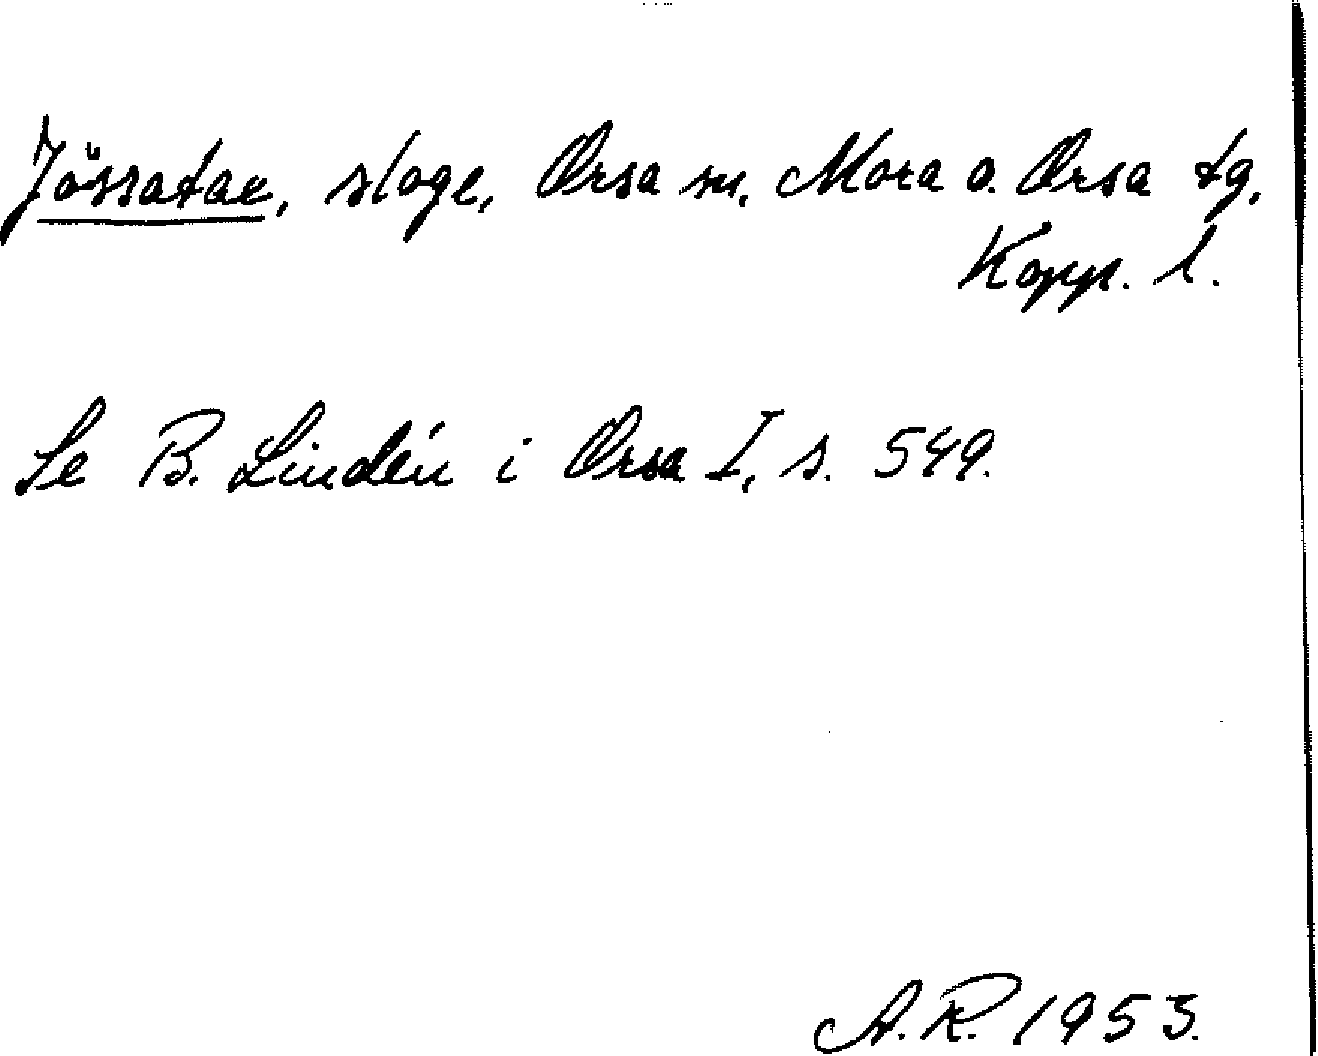 Jössatae, sloge, Orsa sn. Mora o. Orsa tg.
Kopp. l.
Se B. Lindén i Orsa I, s. 549.
A.R. 1953.